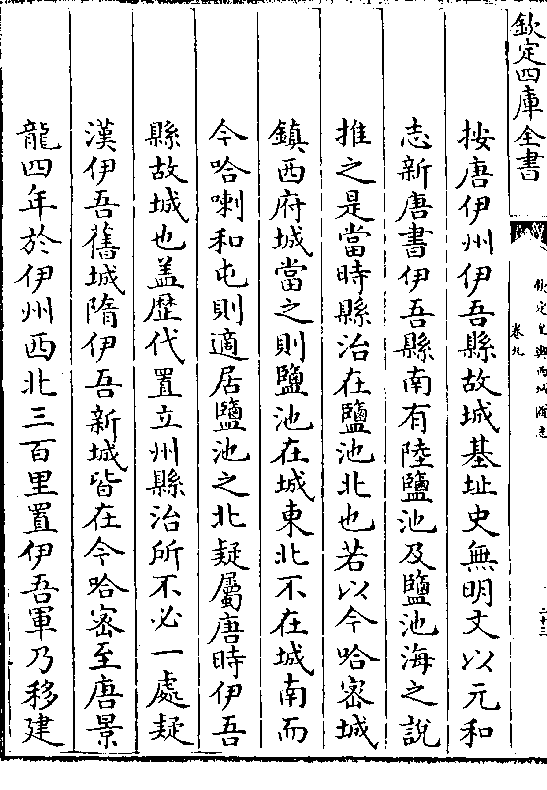 欽定四庫全書
欽定皇輿西域圖志
卷九
二十三
按唐伊州伊吾縣故城基址史無明文以元和
志新唐書伊吾縣南有陸鹽池及鹽池海之說
推之是當時縣治在鹽池北也若以今哈密城
鎮西府城當之則鹽池在城東北不在城南而
今哈喇和屯則適居鹽池之北疑屬唐時伊吾
縣故城也盖歴代置立州縣治所不必一處疑
漢伊吾舊城隋伊吾新城皆在今哈密至唐景
龍四年於伊州西北三百里置伊吾軍乃移建